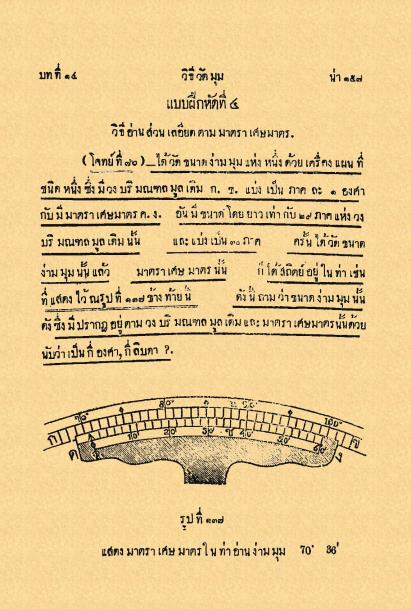 บทที่ ๑๔ วิธีวัดมุม น่า ๑๕๗
แบบฝึกหัดที่ ๔
วิธีอ่านส่วนเลอียดตามมาตราเศษมาตร.
(โจทย์ที่ ๗๐) ได้วัดขนาดง่ามมุมแห่งหนึ่งด้วยเครื่องแผนที่
ชนิดหนึ่งซึ่งมีวงบริมณฑลมูลเดิม ก. ข. แบ่งเป็นภาคละ ๑ องศา
กับมีมาตราเศษมาตร ค. ง. อันมีขนาดโดยยาวเท่ากับ ๒๙ ภาคแห่งวง
บริมณฑลมูลเดิมนั้น และแบ่งเป็น ๓๐ ภาค ครั้นได้วัดขนาด
ง่ามมุมนั้นแล้ว มาตราเศษมาตรนั้น ก็ได้สถิตย์อยู่ในท่าเช่น
ที่แสดงไว้ณรูปที่ ๑๓๗ ข้างท้ายนี้ ดังนี้ถามว่าขนาดง่ามมุมนั้น
ดังซึ่งมีปรากฏอยู่ตามวงบริมณฑลมูลเดิมและมาตราเศษมาตรนั้นด้วย
นับว่าเป็นกี่องศา, กี่ลิบดา ?.
ก ข
ค ง
รูปที่ ๑๓๗
แสดงมาตราเศษมาตรในท่าอ่านง่ามมุม 70° 36′